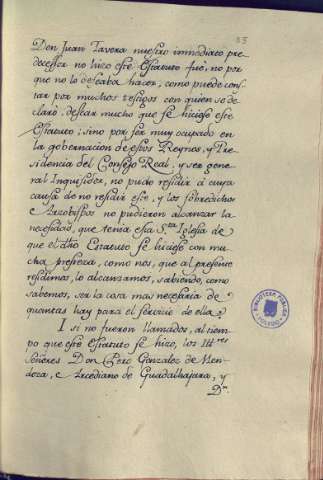 53
Don Juan Tavera nuestro inmediato pre-
decessor no hizo este Estatuto fué, no por
que no lo deseaba hacer, como puede cons-
tar por muchos testigos con quien se de-
claró, desear mucho que se hiciese este
Estatuto; sino por ser muy ocupado en
la gobernacion de estos Reynos, y Pre-
sidencia del Consejo Real, y ser gene-
ral Inquisidor, no pudo residir à cuya
causa de no residir este, y los sobredichos
Arzobispos no pudieron alcanzar la
necesidad, que tenia esta S.ta Iglesia de
que el dho Estatuto se hiciese con mu-
cha presteza, como nos, que al presente
residimos, lo alcanzamos, sabiendo, como
sabemos, ser la cosa mas necesaria de
quantas hay para el servicio de ella.
I si no fueron llamados, al tiem-
po que este Estatuto se hizo, los Ill.res
Señores Don Pero Gonzalez de Men-
doza, Arcediano de Guadalhajara, y
D.n
BIBLIOTECA PUBLICA
TOLEDO